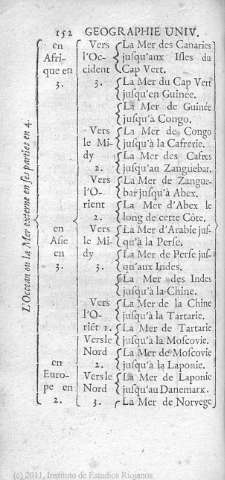 152 GEOGRAPHIE UNIV.
L'Ocean ou la Mer externe en ses parties en 4.
en Vers La Mer des Canaries
Afri- l'Oc- jusqu'aux Isles du
que en cident Cap Vert.
3. 3. La Mer du Cap Vert
jusqu'en Guinée.
La Mer de Guinée
jusqu'à Congo.
Vers La Mer de Congo
le Mi- jusqu'à la Cafrerie.
dy La Mer des Cafres
2. jusqu'au Zanguebar.
Vers La Mer de Zangue-
l'O- bar jusqu'à Abex.
rient La Mer d'Abex le
2. long de certe Côte.
en Vers La Mer d'Arabie jus-
Asie le Mi- qu'à la Perse.
en dy La Mer de Perse jus-
3. 3. qu'aux Indes.
La Mer des Indes
jusqu'à la Chine.
Vers La Mer de la Chine
l'O- jusqu'à la Tartarie.
riēt 2. La Mer de Tartarie
Vers le jusqu'à la Moscovie.
Nord La Mer de Moscovie
en 2. jusqu'à la Laponie.
Euro- Vers le La Mer de Laponie
pe en Nord jusqu'au Danemarx.
2. 3. La Mer de Norvege
(c) 2011, Instituto de Estudios Riojanos